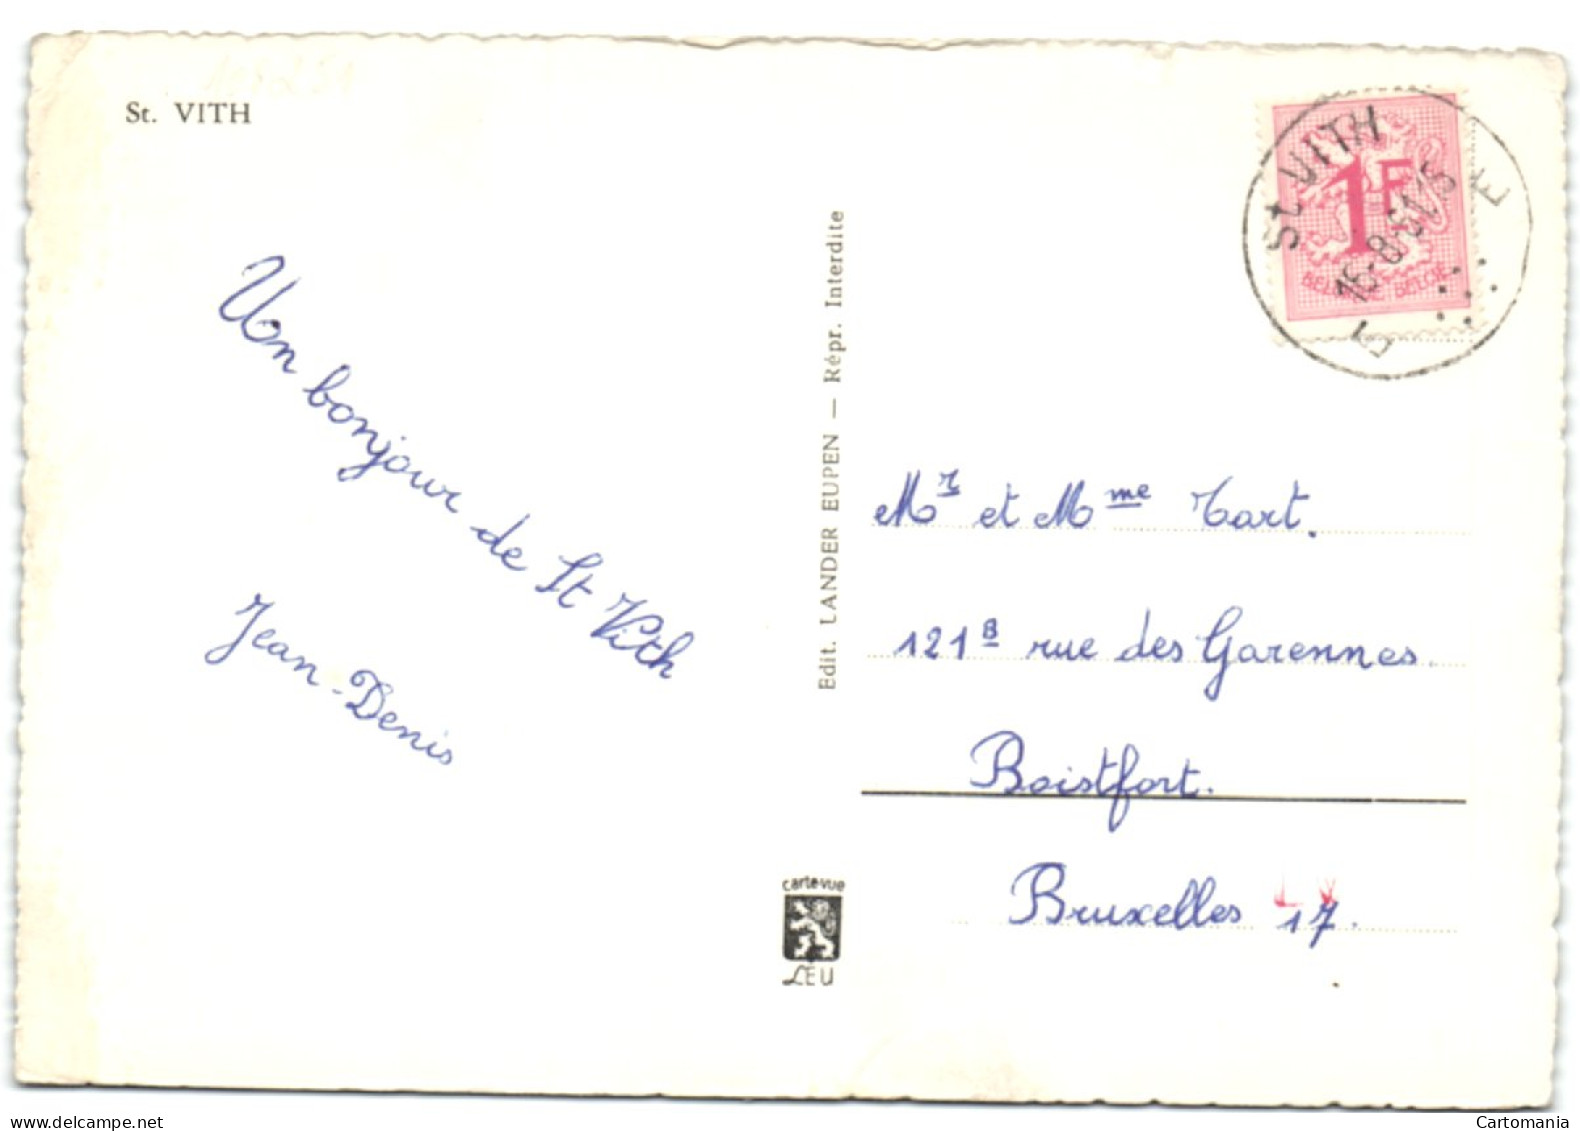 St. VITH
Un bonjour de St Vith
Jean-Denis
Edit. LANDER EUPEN — Répr. Interdite
carte-vue
LEU
1F
BELGIQUE BELGIË
St VITH
16-8-61 15
E
Mr et Mme Tart.
121B rue des Garennes
Boistfort.
Bruxelles 17.
Cartomania
www.delcampe.net